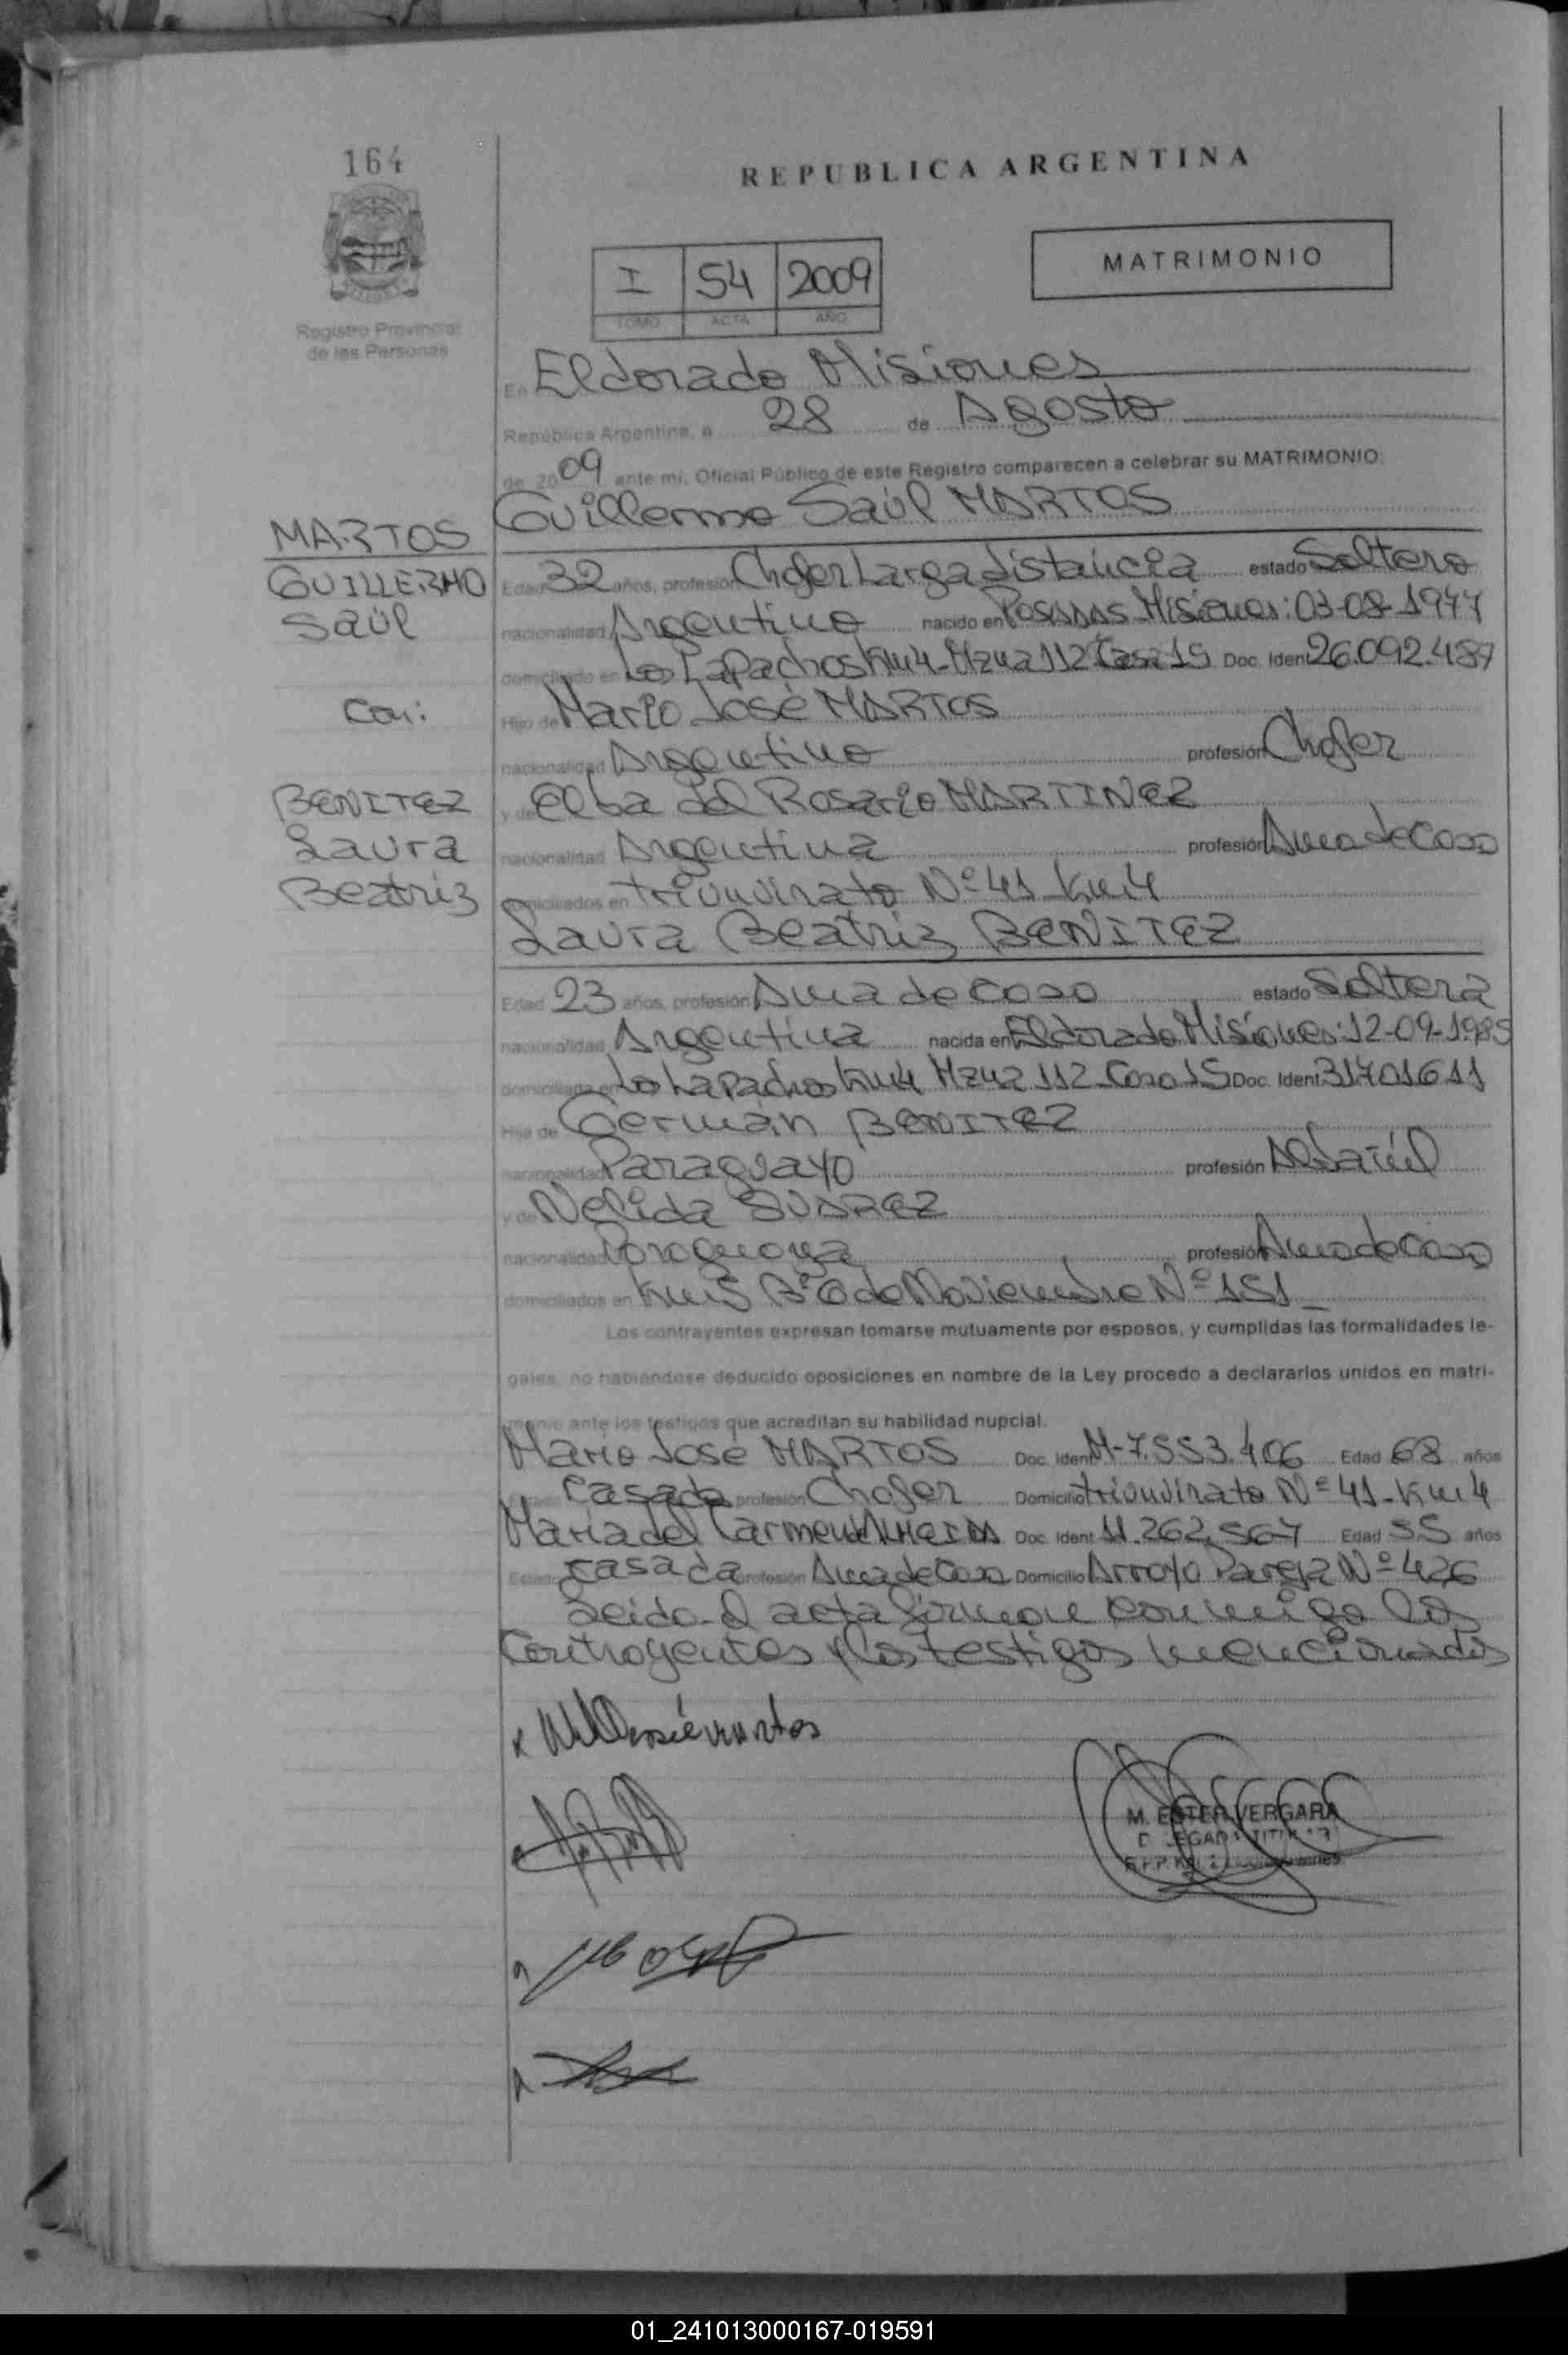 164
REPUBLICA ARGENTINA
MATRIMONIO
I 54 2009
TOMO ACTA AÑO
Registro Provincial
de las Personas
En Eldorado Misiones
República Argentina, a 28 de Agosto
de 2009 ante mi, Oficial Público de este Registro comparecen a celebrar su MATRIMONIO:
Guillermo Saúl MARTOS
MARTOS
GUILLERMO
Saúl
Con:
BENITEZ
Laura
Beatriz
Edad 32 años, profesión Chofer Larga distancia estado Soltero
nacionalidad Argentino nacido en Posadas Misiones: 03-08-1977
domiciliado en Los Lapachos Km 4 - Mzna 112 Casa 15 Doc. Ident 26.092.487
Hijo de Mario José MARTOS
nacionalidad Argentino profesión Chofer
y de Elba del Rosario MARTINEZ
nacionalidad Argentina profesión Ama de Casa
domiciliados en triunvirato Nº 41 - Km 4
Laura Beatriz BENITEZ
Edad 23 años, profesión Ama de Casa estado Soltera
nacionalidad Argentina nacida en Eldorado Misiones: 12-09-1985
domiciliada en Los Lapachos Km 4 Mzna 112 - Casa 15 Doc. Ident 31701611
Hija de Germán BENITEZ
nacionalidad Paraguayo profesión Albañil
y de Nelida SUAREZ
nacionalidad Paraguaya profesión Ama de Casa
domiciliados en Km 5 Bº 6 de Noviembre Nº 151
Los contrayentes expresan tomarse mutuamente por esposos, y cumplidas las formalidades le-
gales, no habiéndose deducido oposiciones en nombre de la Ley procedo a declararlos unidos en matri-
monio ante los testigos que acreditan su habilidad nupcial.
Mario José MARTOS Doc. Ident M-7.553.406 Edad 68 años
Estado Casado profesión Chofer Domicilio triunvirato Nº 41 - Km 4
Maria del Carmen ALMEIDA Doc. Ident 11.262.567 Edad 55 años
Estado Casada profesión Ama de Casa Domicilio Arroyo Pareja Nº 426
Leido el acta firman conmigo los
Contrayentes y los testigos mencionados
M. ESTER VERGARA
DELEGADA TITULAR
01_241013000167-019591